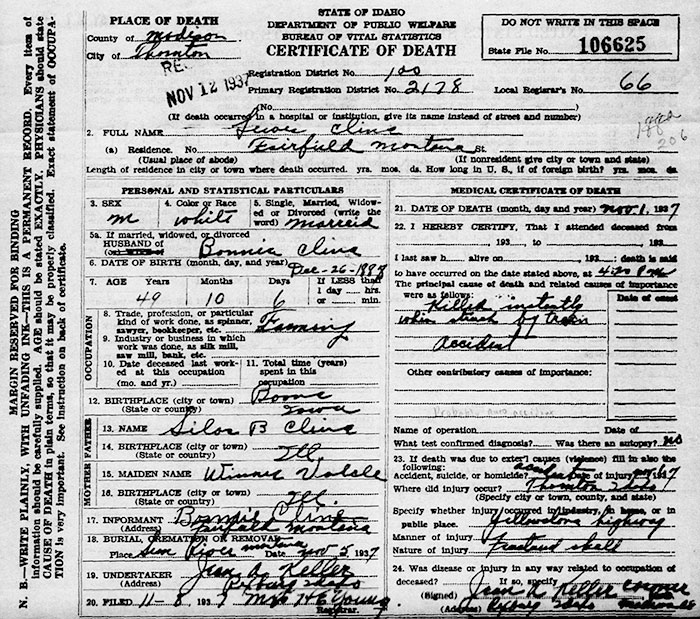 MARGIN RESERVED FOR BINDING
N. B.—WRITE PLAINLY, WITH UNFADING INK—THIS IS A PERMANENT RECORD. Every item of
information should be carefully supplied. AGE should be stated EXACTLY. PHYSICIANS should state
CAUSE OF DEATH in plain terms, so that it may be properly classified. Exact statement of OCCUPA-
TION is very important. See instruction on back of certificate.
PLACE OF DEATH
County of Madison
City of Thornton
REC
NOV 12 1937
STATE OF IDAHO
DEPARTMENT OF PUBLIC WELFARE
BUREAU OF VITAL STATISTICS
CERTIFICATE OF DEATH
DO NOT WRITE IN THIS SPACE
State File No. 106625
Registration District No. 100
Primary Registration District No. 2178
Local Registrar's No. 66
(No.
(If death occurred in a hospital or institution, give its name instead of street and number)
2. FULL NAME Cline
(a) Residence. No. Fairfield Montana St.
(Usual place of abode) (If nonresident give city or town and state)
206
Length of residence in city or town where death occurred. yrs. mos. ds. How long in U. S., if of foreign birth? yrs. mos. ds.
PERSONAL AND STATISTICAL PARTICULARS
3. SEX M
4. Color or Race White
5. Single, Married, Widow-
ed or Divorced (write the
word) Married
5a. If married, widowed or divorced
HUSBAND of
(or WIFE of) Bonnie Cline
6. DATE OF BIRTH (month, day, and year) Dec-26-1887
7. AGE Years Months Days If LESS than
1 day hrs.
or min.
49 10 6
OCCUPATION
8. Trade, profession, or particular
kind of work done, as spinner,
sawyer, bookkeeper, etc. Farming
9. Industry or business in which
work was done, as silk mill,
saw mill, bank, etc.
10. Date deceased last work-
ed at this occupation
(mo. and yr.)
11. Total time (years)
spent in this
occupation
12. BIRTHPLACE (city or town) Boone
(State or country) Iowa
FATHER
13. NAME Silas B Cline
14. BIRTHPLACE (city or town)
(State or country) Ill.
MOTHER
15. MAIDEN NAME
16. BIRTHPLACE (city or town)
(State or country) Ill.
17. INFORMANT Bonnie Cline
(Address) Fairfield Montana
18. BURIAL, CREMATION OR REMOVAL
Place Sun River Montana Date Nov 5 1937
19. UNDERTAKER Jean A Keller
(Address) Rexburg Idaho
20. FILED 11-8 1937 Mrs H C Young
Registrar.
MEDICAL CERTIFICATE OF DEATH
21. DATE OF DEATH (month, day and year) Nov. 1, 1937
22. I HEREBY CERTIFY, That I attended deceased from
, 193 , to , 193
I last saw h alive on , 193 ; death is said
to have occurred on the date stated above, at 4:20 P M
The principal cause of death and related causes of importance
were as follows: Date of onset
Killed instantly
when struck by train
Accident
Other contributory causes of importance:
Name of operation Date of
What test confirmed diagnosis? Was there an autopsy? No
23. If death was due to external causes (violence) fill in also the
following:
Accident, suicide, or homicide? accident Date of injury Nov 1 37
Where did injury occur? Thornton Idaho
(Specify city or town, county, and state)
Specify whether injury occurred in industry, in home, or in
public place. Yellowstone highway
Manner of injury
Nature of injury Fractured skull
24. Was disease or injury in any way related to occupation of
deceased? If so, specify
(Signed) Jean A Keller Coroner
(Address) Rexburg Idaho